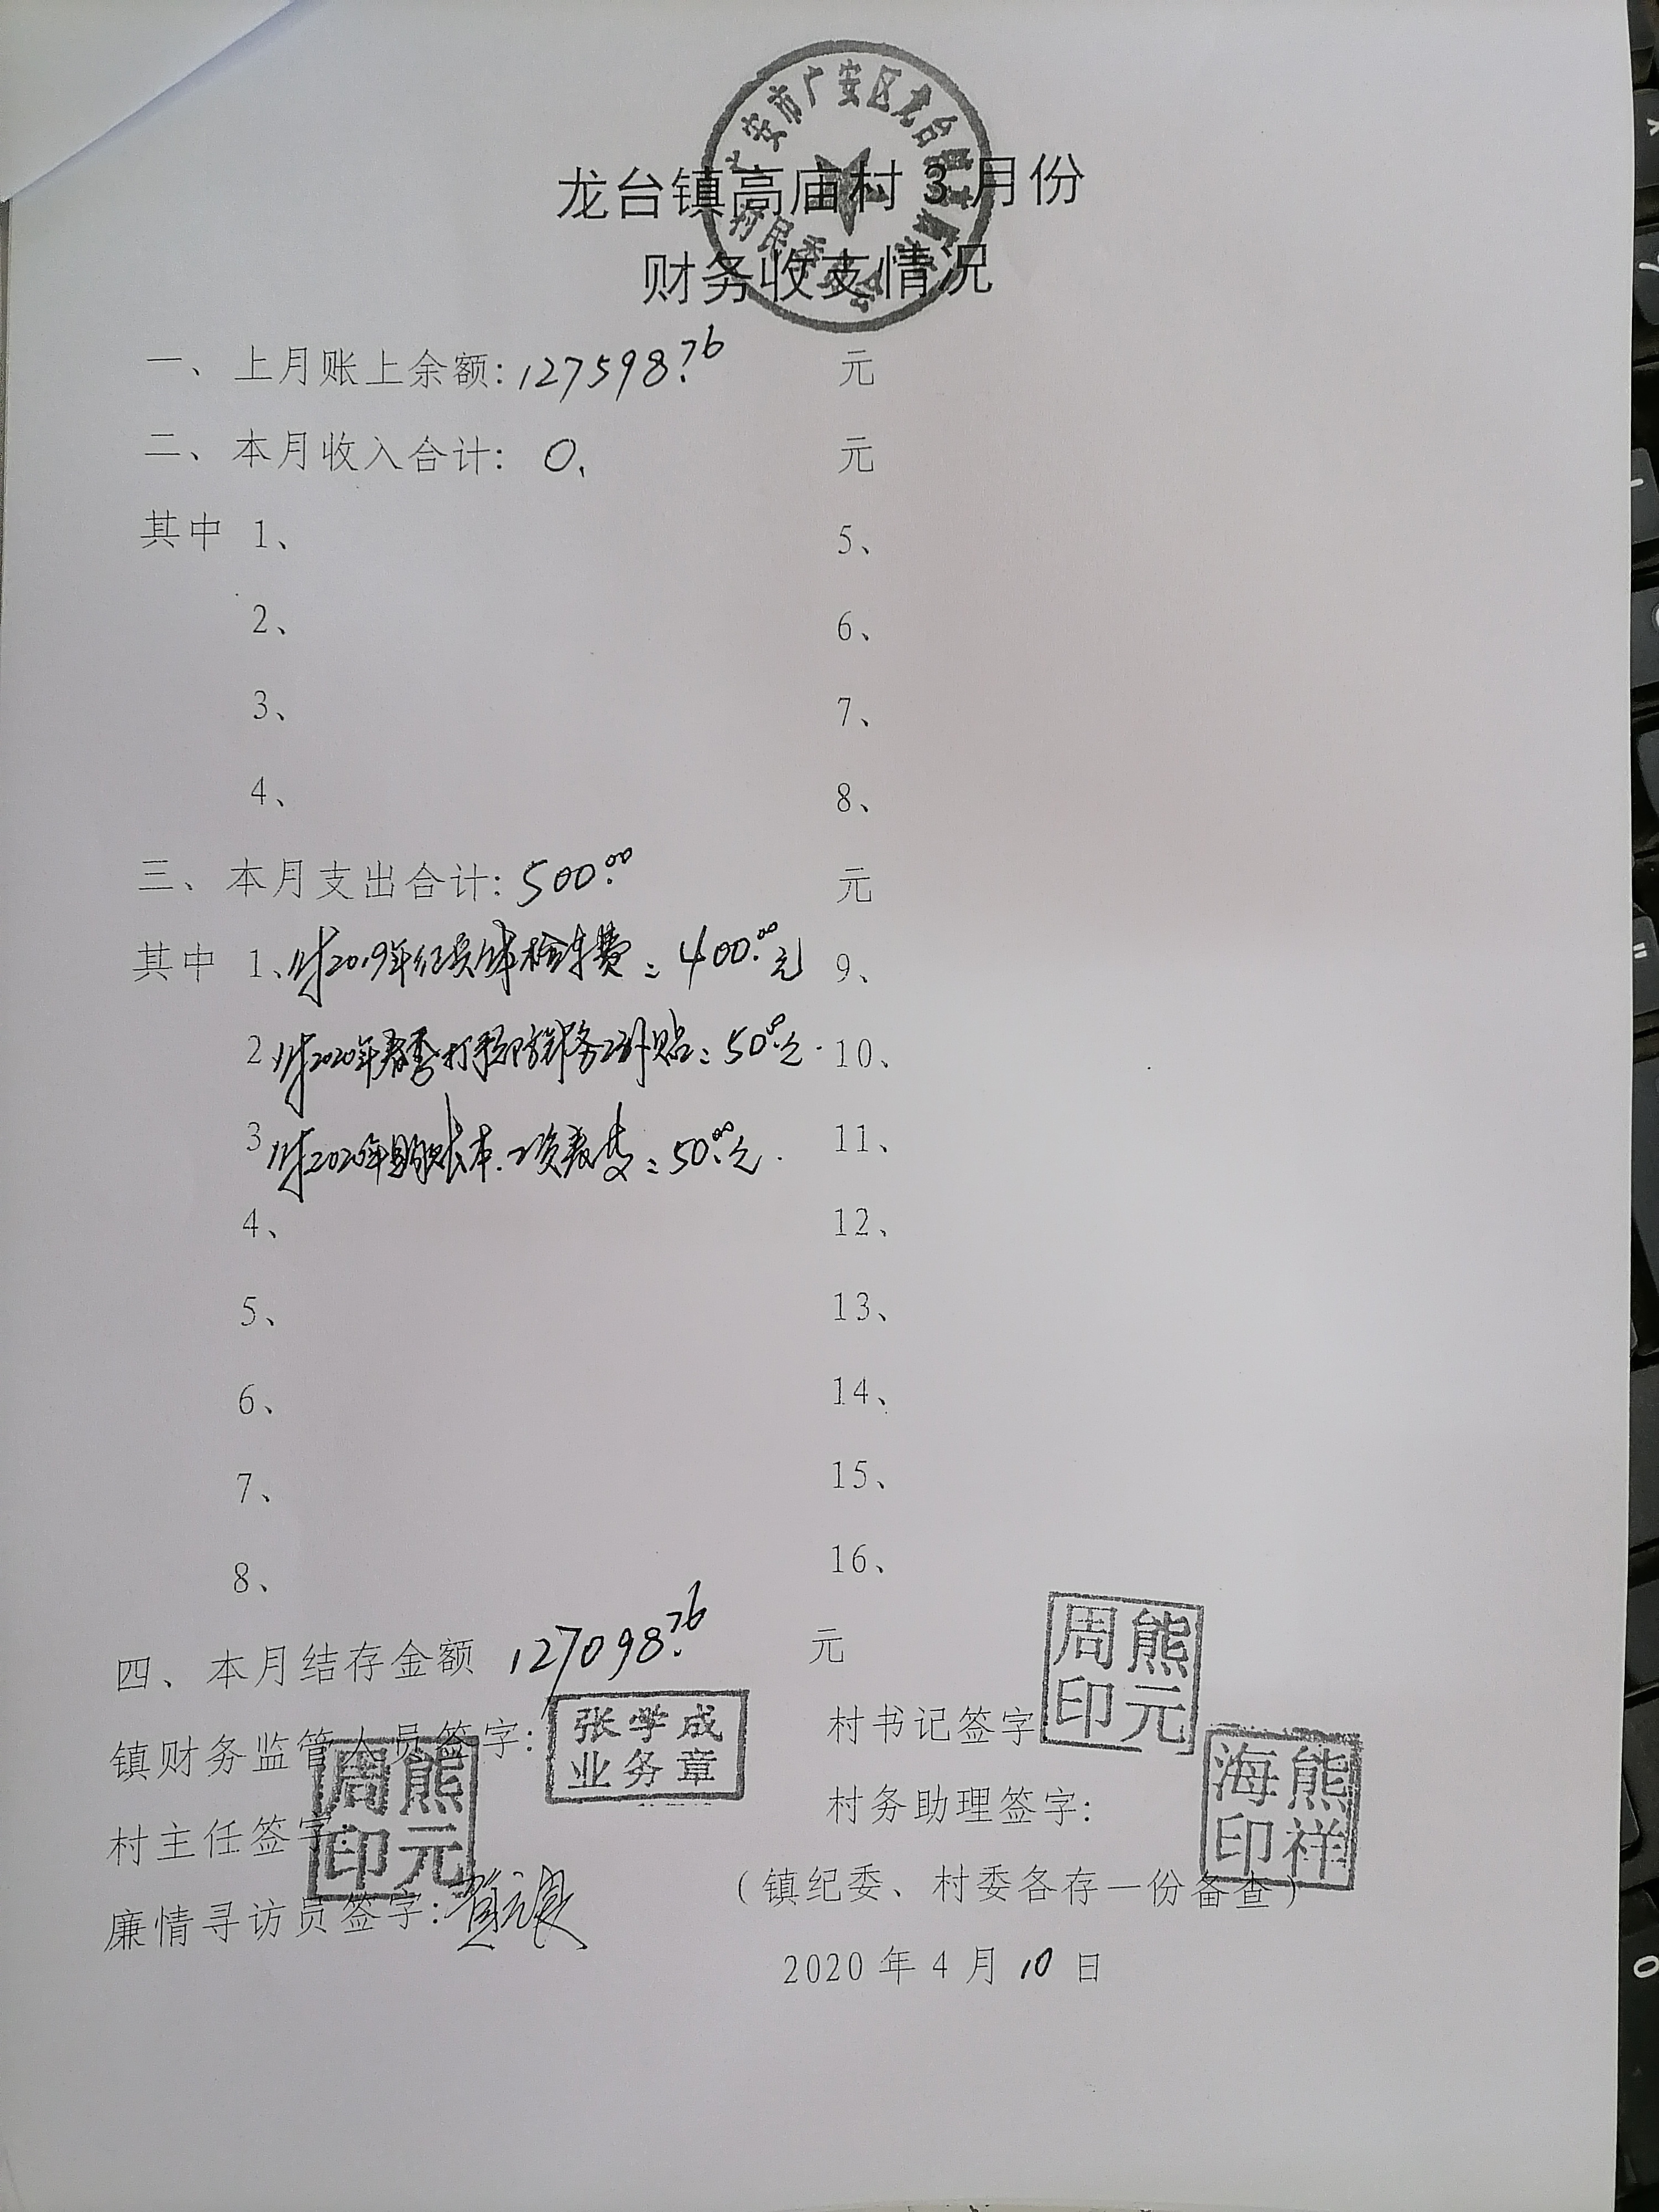 广安市广安区龙台镇高庙村
村民委员会
龙台镇高庙村3月份
财务收支情况
一、上月账上余额:127598.76 元
二、本月收入合计: 0. 元
其中 1、 5、
2、 6、
3、 7、
4、 8、
三、本月支出合计:500.00 元
其中 1、付2019年 体检车费:400.00元 9、
2 付2020年春季打预防针务工补贴:50.00元. 10、
3 付2020年购账本.工资表支:50.00元. 11、
4、 12、
5、 13、
6、 14、
7、 15、
8、 16、
四、本月结存金额 127098.76 元
镇财务监管人员签字: 张学成 业务章 村书记签字 熊元周印
村主任签字 熊元周印 村务助理签字: 熊祥海印
廉情寻访员签字: （镇纪委、村委各存一份备查）
2020年4月10日